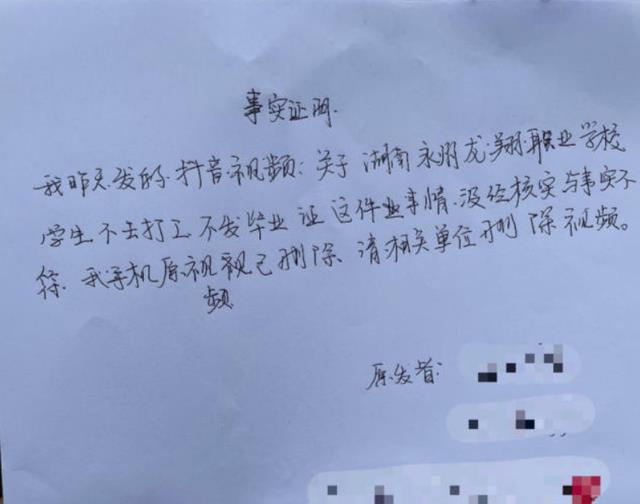 事实证明.
我昨天发的抖音视频：关于湖南永州龙翔职业学校
学生不去打工不发毕业证这件业事情.没经核实与事实不
符.我手机原视视已删除、请相关单位删除视频。
频
原发者：